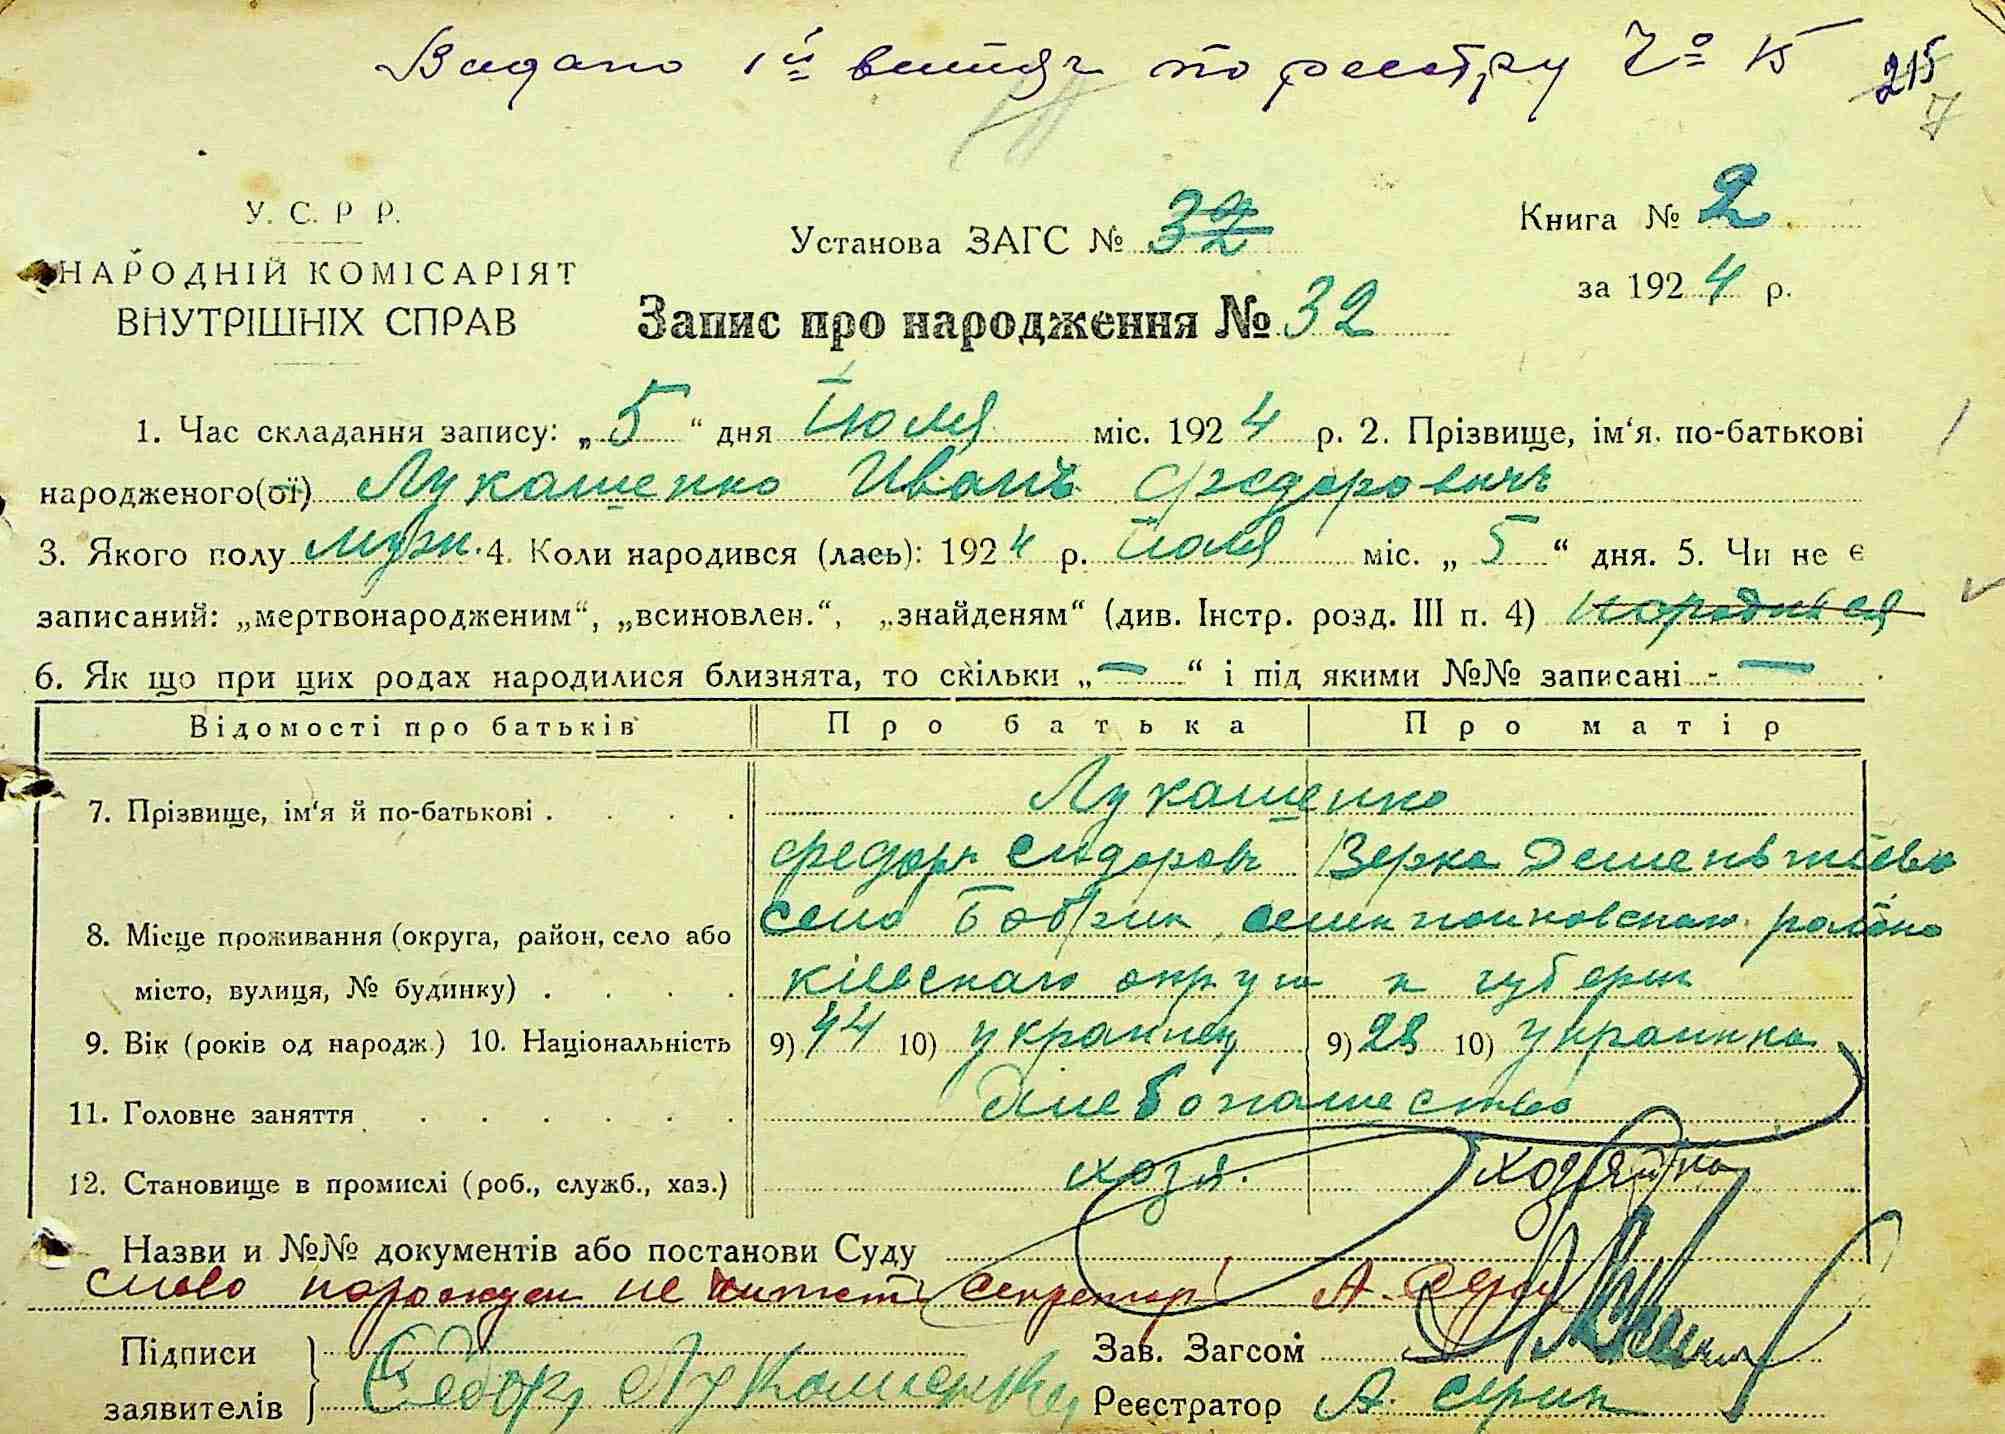 Видано 1й витяг по реестру № 15
215
7
У. С. Р Р.
НАРОДНІЙ КОМІСАРІЯТ
ВНУТРІШНІХ СПРАВ
Установа ЗАГС № 32
Книга № 2
за 1924 р.
Запис про народження № 32
1. Час складання запису: „5“ дня Июля міс. 1924 р. 2. Прізвище, ім‘я. по-батькові
народженого(ої) Лукашенко Иванъ Федоровичъ
3. Якого полу муж. 4. Коли народився (лась): 1924 р. Июля міс. „5“ дня. 5. Чи не є
записаний: „мертвонародженим“, „всиновлен.“, „знайденям“ (див. Інстр. розд. III п. 4) народився
6. Як що при цих родах народилися близнята, то скільки „—“ і під якими №№ записані - —
Відомості про батьків Про батька Про матір
7. Прізвище, ім‘я й по-батькові . . . . Лукашенко
Федоръ Сидоровъ
8. Місце проживання (округа, район, село або село Бобрик района
місто, вулиця, № будинку) . . . . Кіевскаго округа и губерни
9. Вік (років од народж.) 10. Національність 9) 44 10) украинец 9) 28 10) украинка
11. Головне заняття . . . . . . хлебопашество
12. Становище в промислі (роб., служб., хаз.) хозя. хозяйка
Назви и №№ документів або постанови Суду
слово не читать секретар А.
Підписи
заявителів Федор Лукашенко
Зав. Загсом
Реєстратор А.